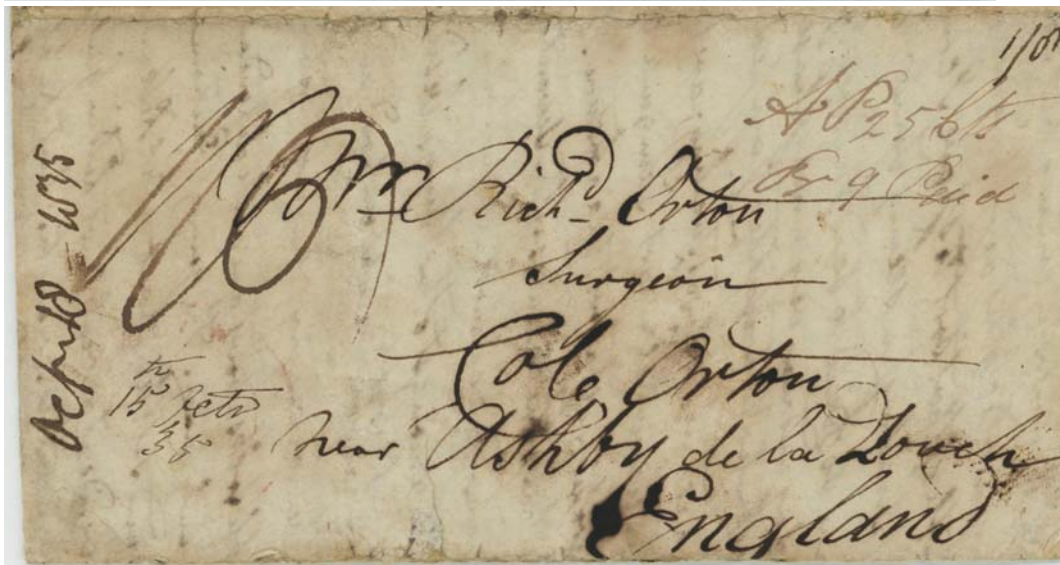 1/8
A P 25 cts
Br 9 Paid
Mr Richd Orton
Surgeon
Cole Orton
near Ashby de la Zouch
England
15th
35
1835